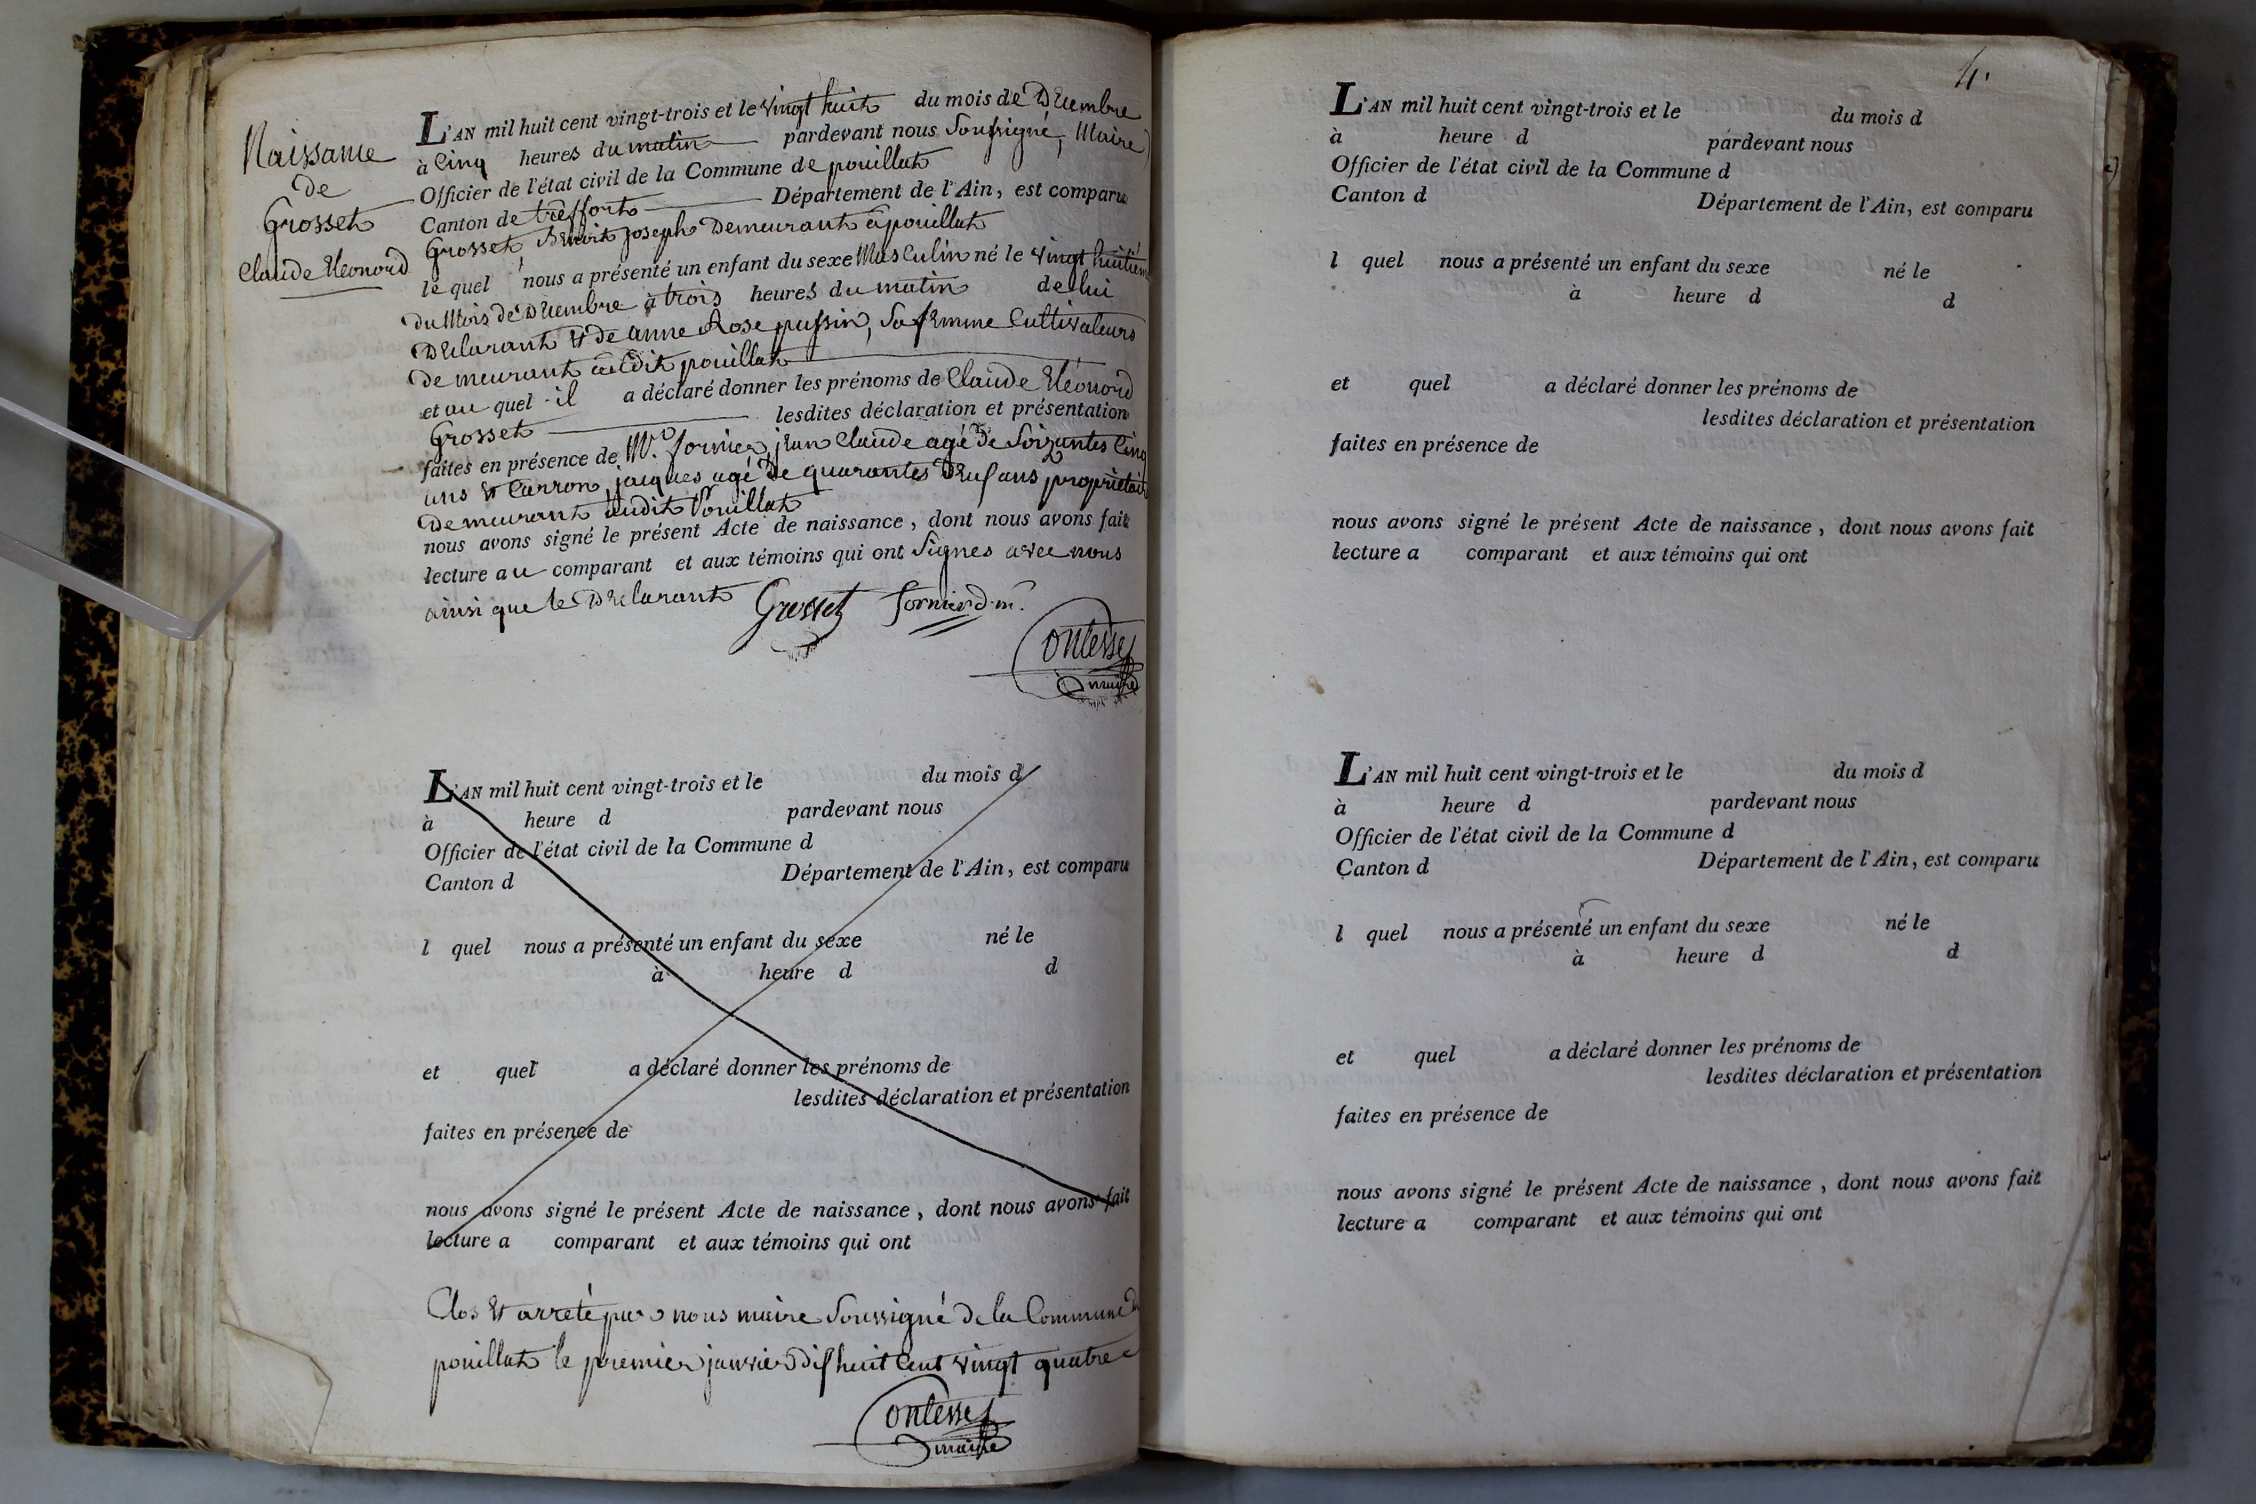 Naissance
de
Grosset
Claude Léonord
L'AN mil huit cent vingt-trois et le vingt huit du mois de Décembre
à Cinq heures du matin pardevant nous Soussigné, Maire
Officier de l'état civil de la Commune de pouillat
Canton de treffort Département de l'Ain, est comparu
Grosset Benoit joseph Demeurant à pouillat
le quel nous a présenté un enfant du sexe Masculin né le vingt huitième
du Mois de Décembre à trois heures du matin de lui
Déclarant et de anne Rose pussin, sa femme Cultivateurs
demeurant audit pouillat
et au quel il a déclaré donner les prénoms de Claude Léonord
Grosset lesdites déclaration et présentation
faites en présence de Mr. fornier, jean Claude agé de Soizantes Cinq
ans et Carron jacques agé de quarantes Deus ans propriétair
demeurant audit Pouillat
nous avons signé le présent Acte de naissance, dont nous avons fait
lecture au comparant et aux témoins qui ont Signes avec nous
ainsi que le Déclarant Grosset fornier d.m.
Contesse
maire
L'AN mil huit cent vingt-trois et le du mois d
à heure d pardevant nous
Officier de l'état civil de la Commune d
Canton d Département de l'Ain, est comparu
l quel nous a présenté un enfant du sexe né le
à heure d d
et quel a déclaré donner les prénoms de
lesdites déclaration et présentation
faites en présence de
nous avons signé le présent Acte de naissance, dont nous avons fait
lecture a comparant et aux témoins qui ont
Clos et arreté par nous maire Soussigné de la Commune de
pouillat le premier janvier dishuit Cent vingt quatre
Contesse
maire
4.
L'AN mil huit cent vingt-trois et le du mois d
à heure d pardevant nous
Officier de l'état civil de la Commune d
Canton d Département de l'Ain, est comparu
l quel nous a présenté un enfant du sexe né le
à heure d d
et quel a déclaré donner les prénoms de
lesdites déclaration et présentation
faites en présence de
nous avons signé le présent Acte de naissance, dont nous avons fait
lecture a comparant et aux témoins qui ont
L'AN mil huit cent vingt-trois et le du mois d
à heure d pardevant nous
Officier de l'état civil de la Commune d
Canton d Département de l'Ain, est comparu
l quel nous a présenté un enfant du sexe né le
à heure d d
et quel a déclaré donner les prénoms de
lesdites déclaration et présentation
faites en présence de
nous avons signé le présent Acte de naissance, dont nous avons fait
lecture a comparant et aux témoins qui ont